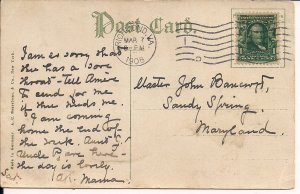 Post Card.
MAR 7
1908
Iam so sorry that
she has a sore
throat - Tell Amie
to send for me
if she needs me.
I am coming
home the end of
the week. Aunt
Uncle here -
the day is lovely
Sat. Mama.
Master John Bancroft,
Sandy Spring,
Maryland.